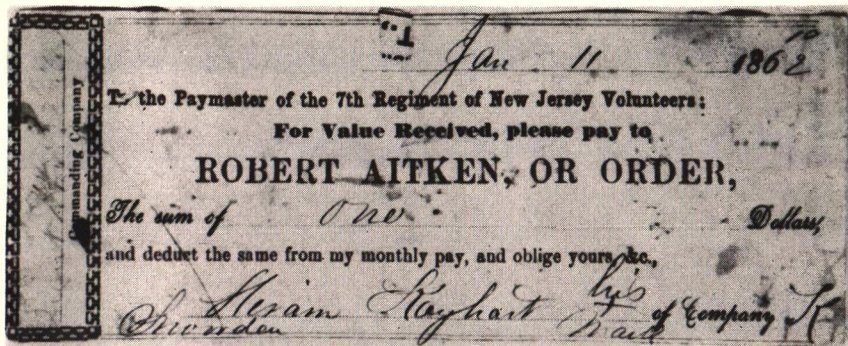 Jan 11 1862
To the Paymaster of the 7th Regiment of New Jersey Volunteers;
For Value Received, please pay to
ROBERT AITKEN, OR ORDER,
The sum of one Dollars,
and deduct the same from my monthly pay, and oblige yours, &c.,
Hiram Kayhart his of Company K
Snowden mark
Commanding Company